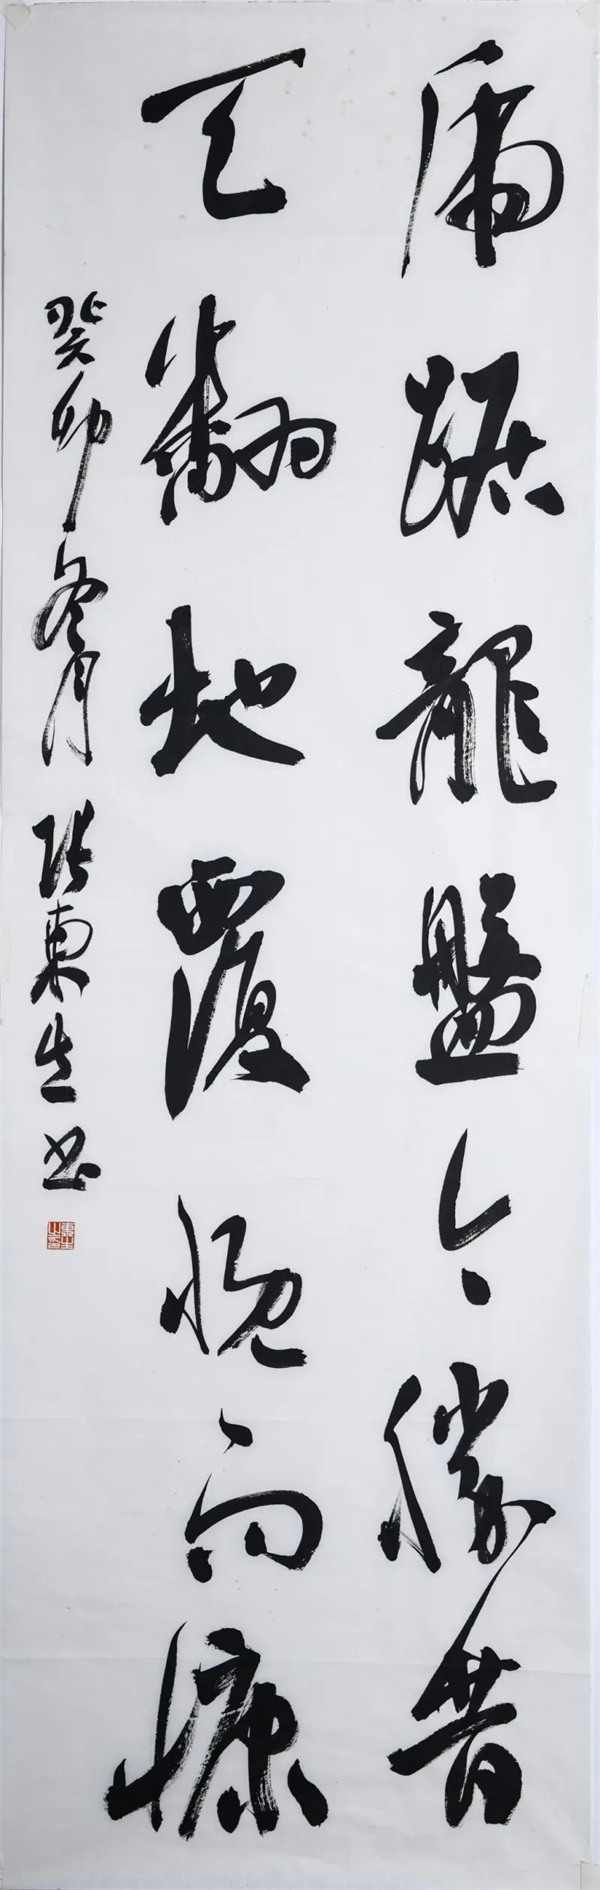 虎踞龍盤今勝昔
天翻地覆慨而慷
癸卯冬月張東生書